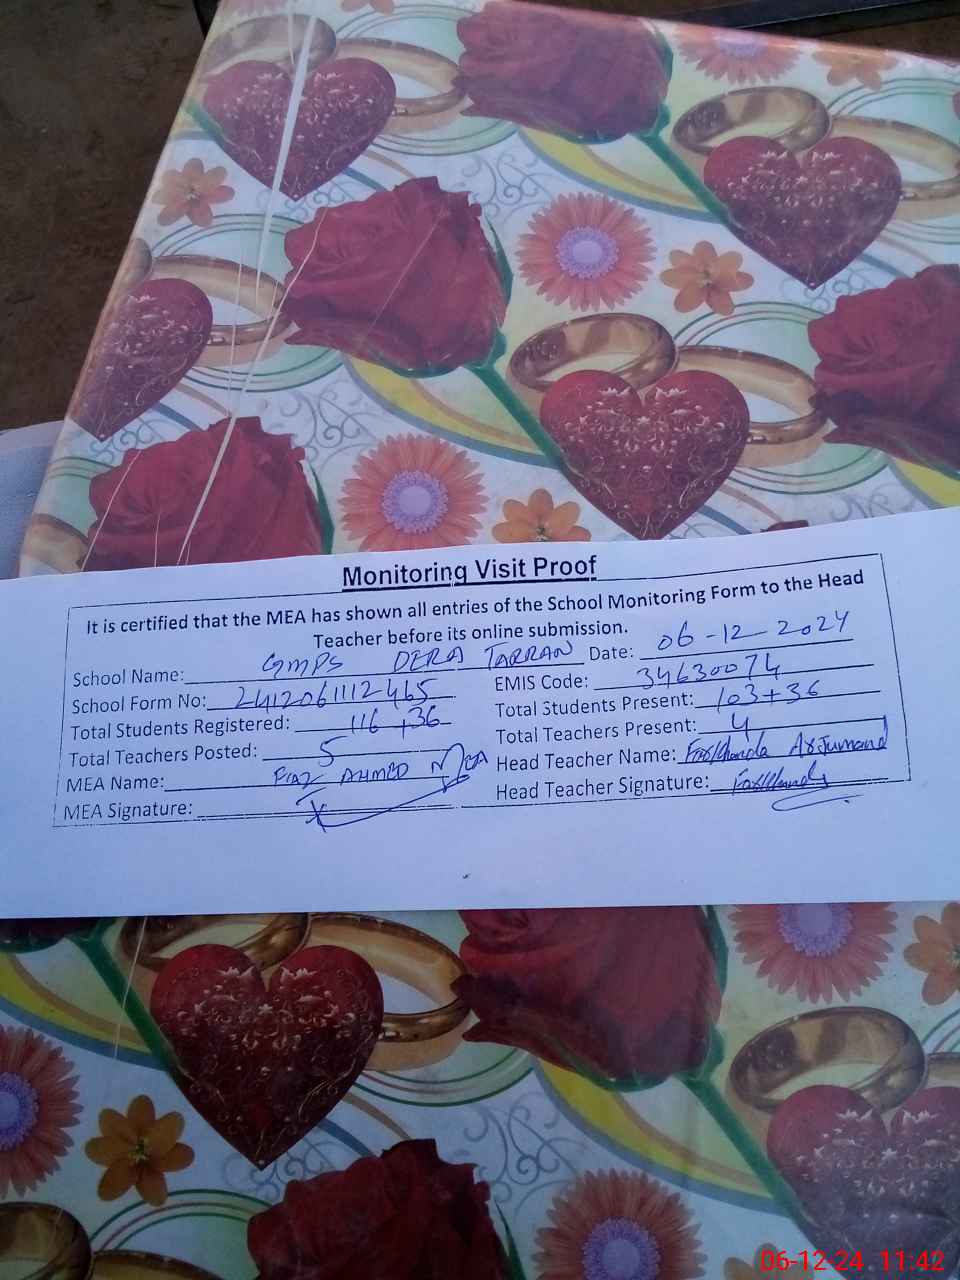 Monitoring Visit Proof
It is certified that the MEA has shown all entries of the School Monitoring Form to the Head
Teacher before its online submission.
School Name: GMPS DERA TARRAN Date: 06-12-2024
School Form No: 2412061112465 EMIS Code: 34630074
Total Students Registered: 116 +36 Total Students Present: 103+36
Total Teachers Posted: 5 Total Teachers Present: 4
MEA Name: FIAZ AHMED MEA Head Teacher Name: Arjumand
MEA Signature: Head Teacher Signature:
06-12-24 11:42